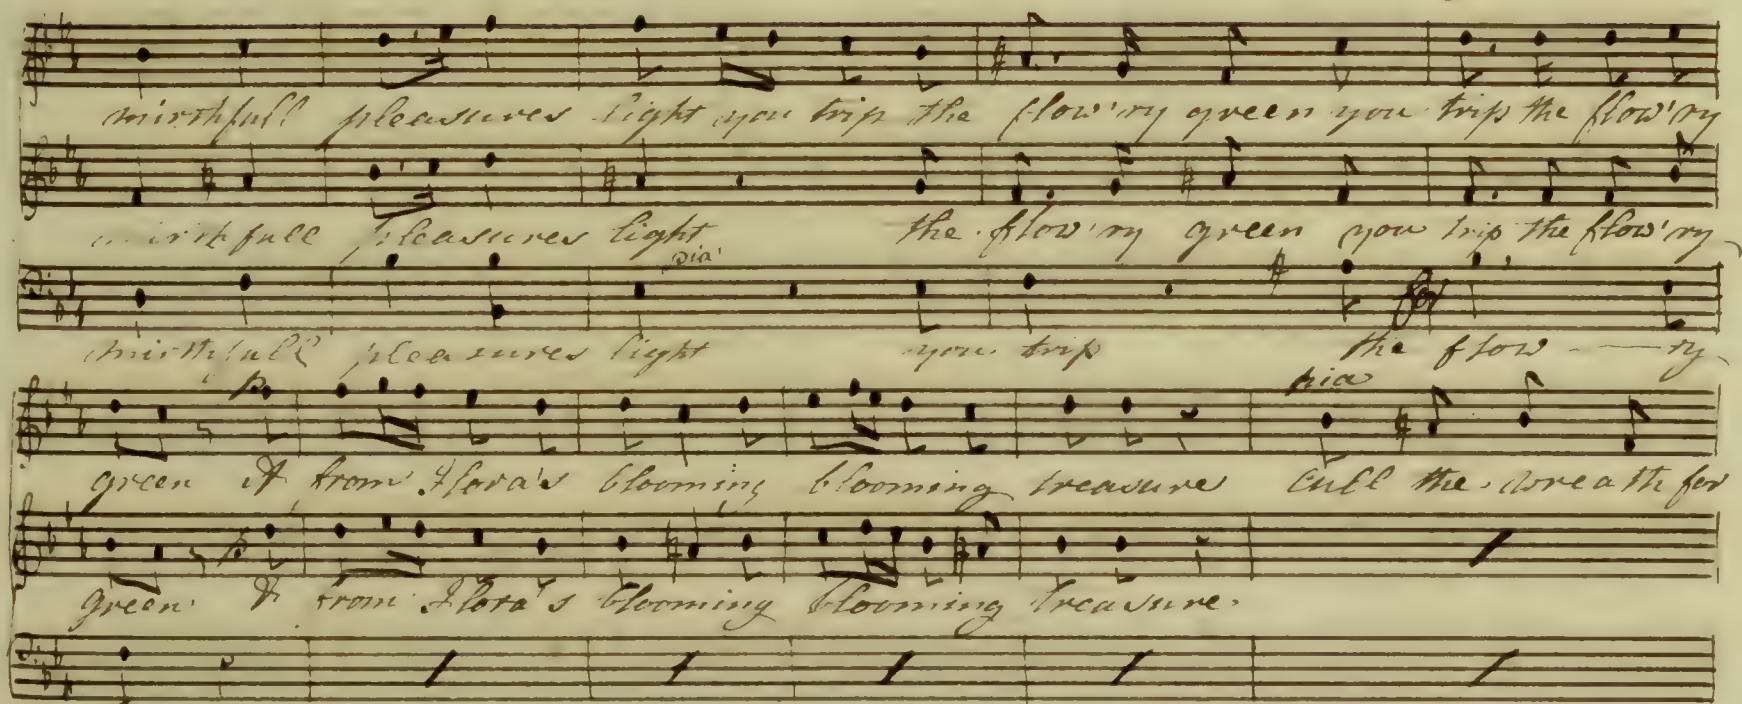 mirthfull pleasures light you trip the flow'ry green you trip the flow'ry
mirthfull pleasures light the flow'ry green you trip the flow'ry
pia
mirthfull pleasures light you trip the flow - ry
for
p pia
green & from Flora's blooming blooming treasure Cull the wreath for
p
green & from Flora's blooming blooming treasure